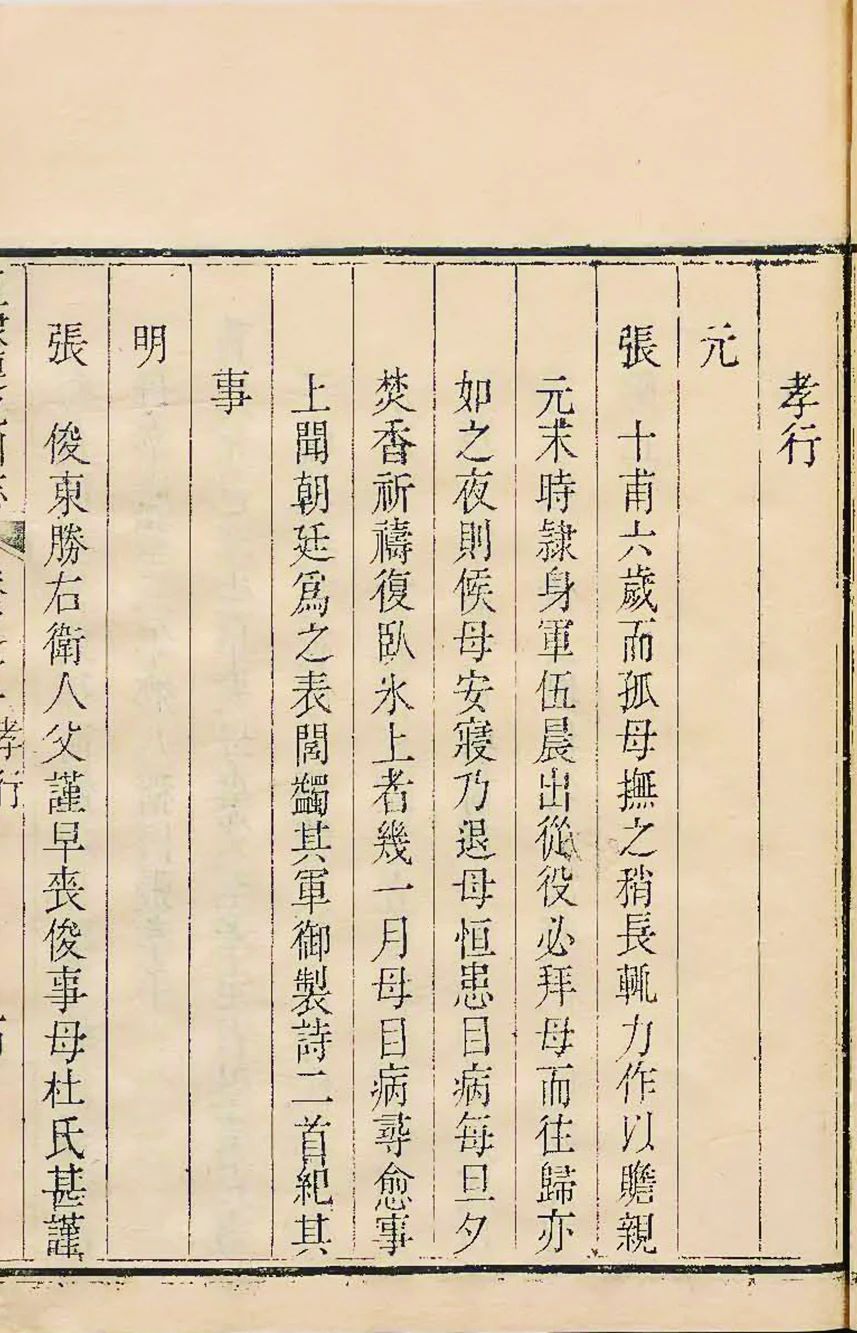 孝行
元
張　十甫六歲而孤母撫之稍長輒力作以贍親
元末時隷身軍伍晨出從役必拜母而往歸亦
如之夜則候母安寢乃退母恒患目病每旦夕
焚香祈禱復臥氷上者幾一月母目病尋愈事
上聞朝廷爲之表閭蠲其軍御製詩二首紀其
事
明
張　俊東勝右衛人父謹早喪俊事母杜氏甚謹
孝行